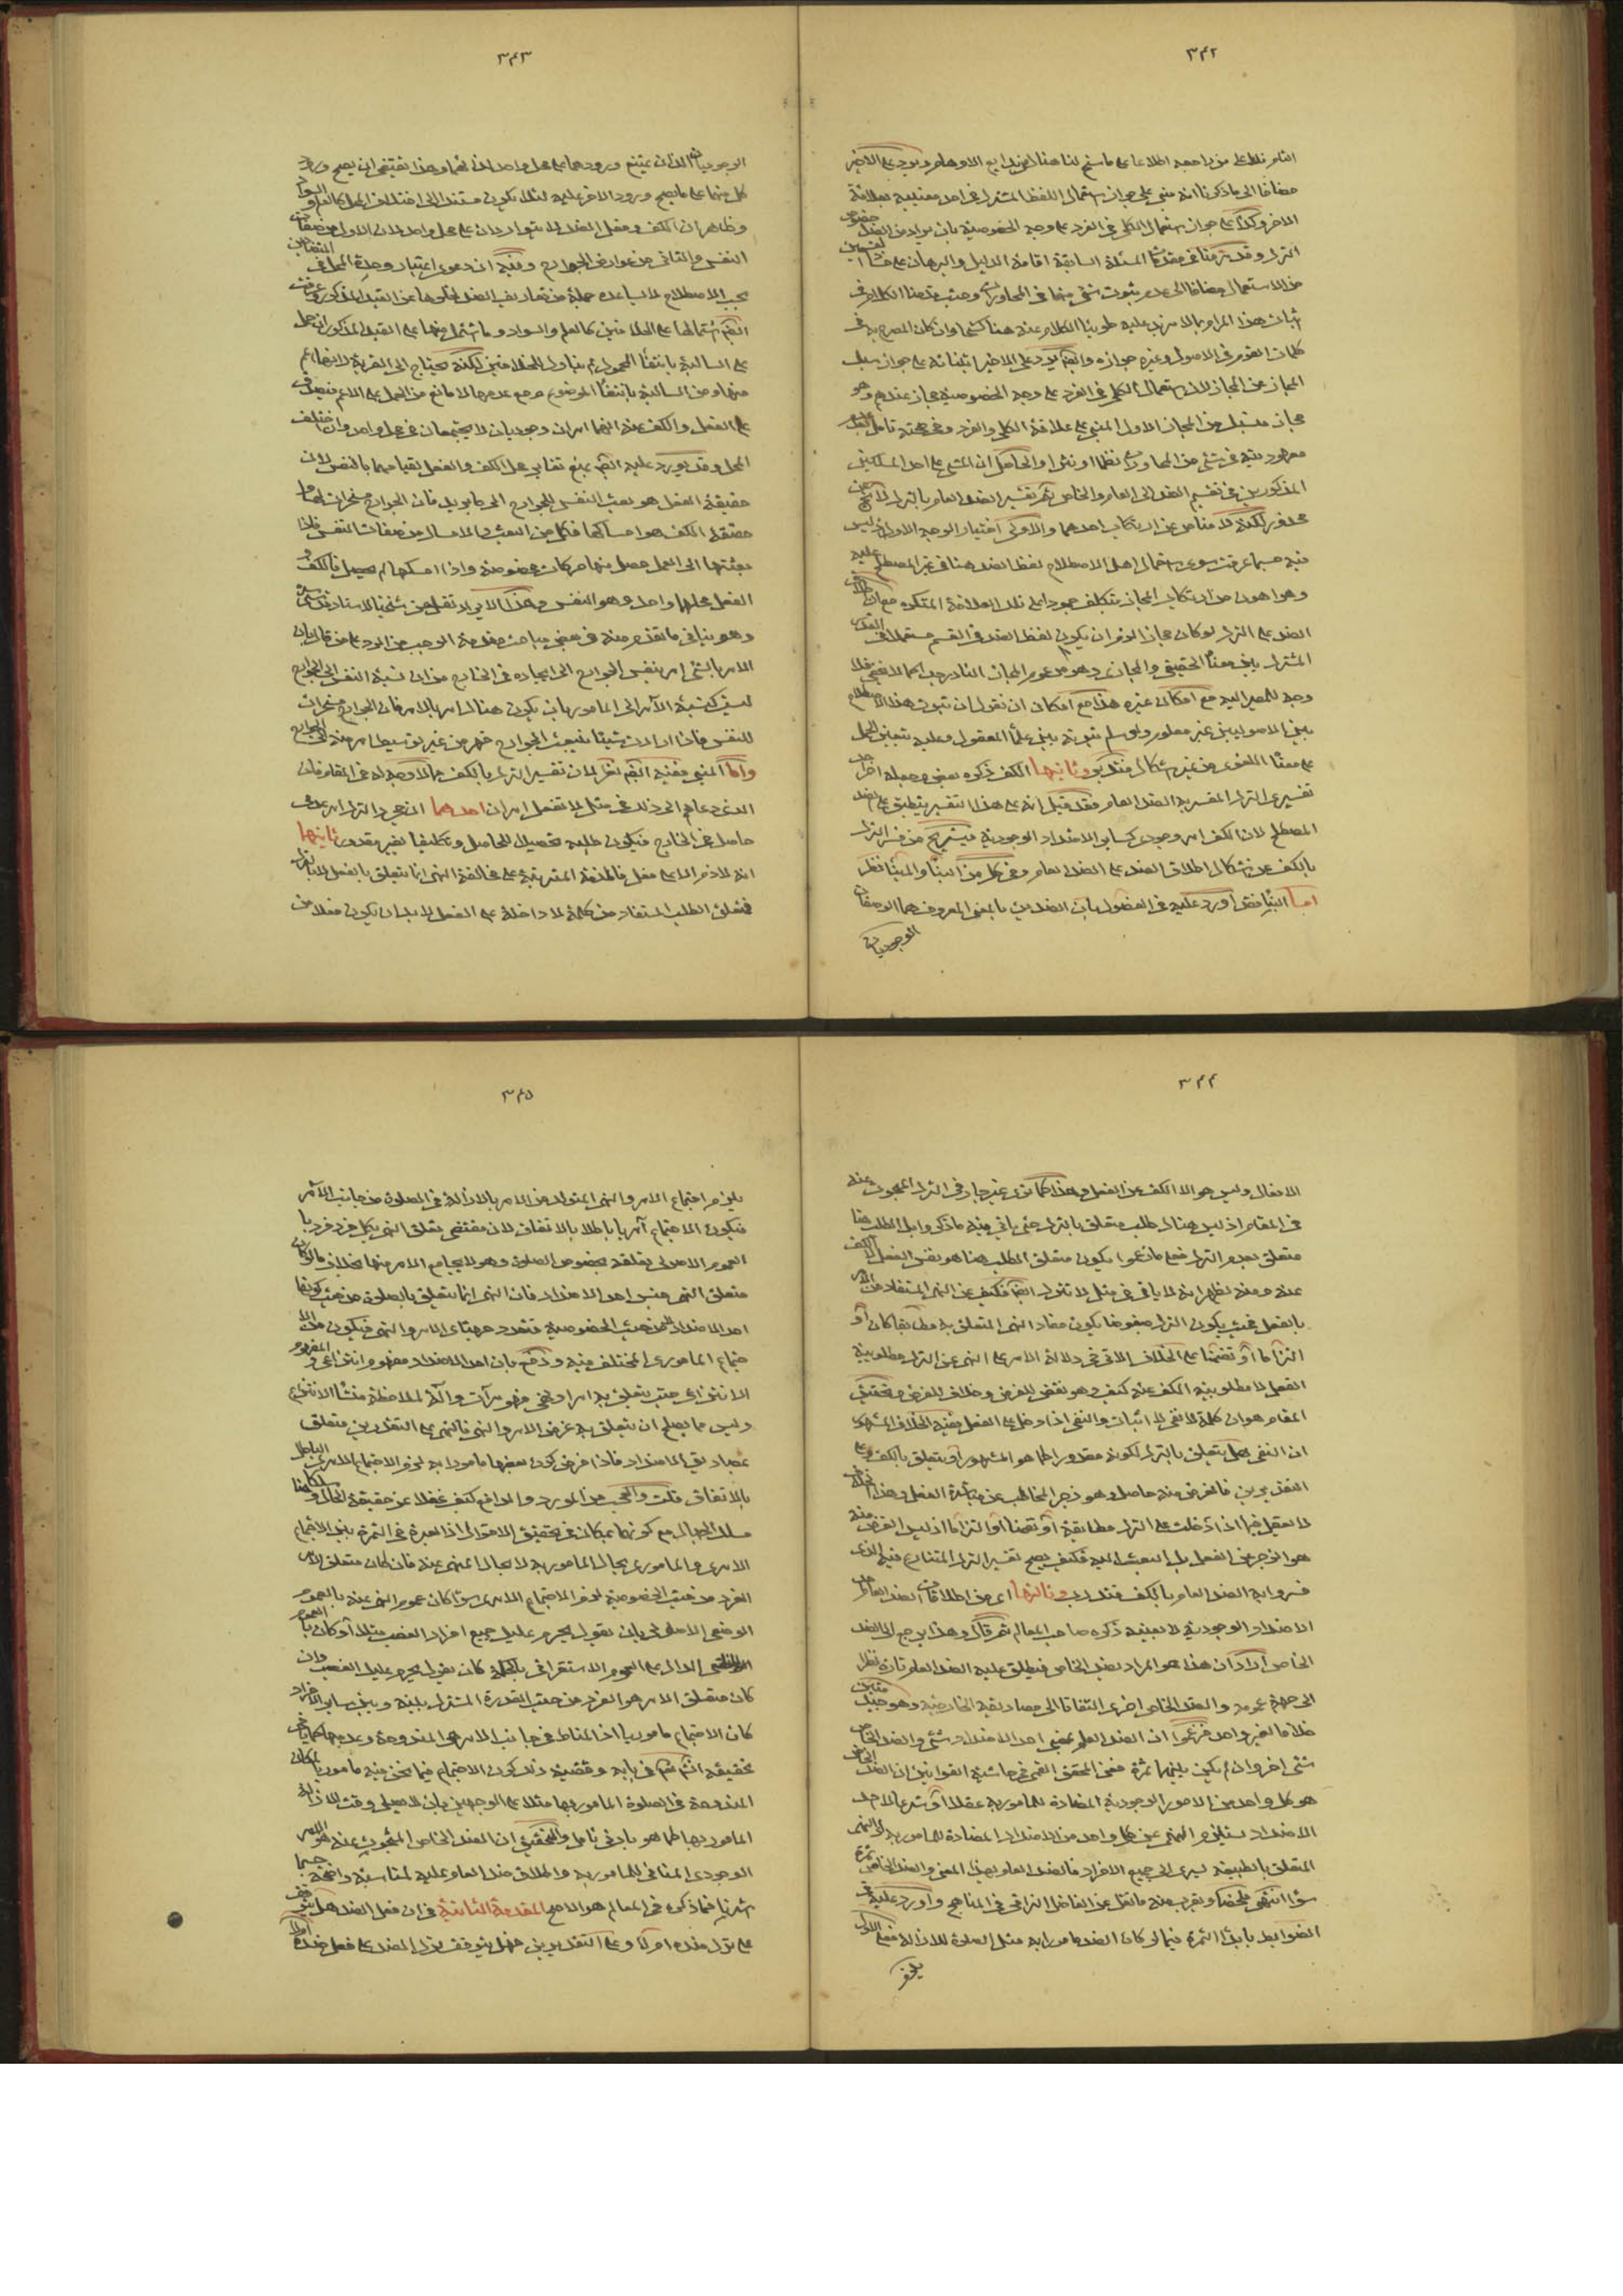 ٣٤٢
مضافا الى ما ذكرنا انه مبنى على جواز استعمال اللفظ المشترك فى احد معنييه بعلاقة
الاخر وكذا على جواز استعمال الكلى فى الفرد على وجه الخصوصية بان يراد من الضد خصوص
الترك وقد فى المسئلة السابقة اقامة الدليل والبرهان على
من الاستعمال مضافا الى عدم ثبوت شىء منها فى المحاورات وحيث قدمنا الكلام فى
اثبات هذا المرام بما لا مزيد عليه طوينا الكلام عنه هنا كشحا وان كان المصرح به فى
كلمات القوم فى الاصول وغيره جوازه على الاخير ابتنائه على جواز سبك
المجاز عن المجاز لان استعمال الكلى فى الفرد على وجه الخصوصية مجاز عندهم وهو
مجاز من المجاز الاول المبنى على علاقة الكلى والفرد وفى صحته تامل
نظما او نثرا والحاصل ان المشى على احد المسلكين
المذكورين فى تقسيم الضد الى العام والخاص ثم تفسير الضد العام بالترك لا يخ عن
محذور لكنه لا مناص عن ارتكاب احدهما والاولى اختيار الوجه الاول اذ ليس
فيه حسبما عرفت سوى استعمال اهل الاصطلاح لفظ الضد هنا فى غير المصطلح عليه
وهو اهون من ارتكاب المجاز
الضد على الترك لو كان مجازا لزم ان يكون لفظ الضد فى القسم مستعملا فى القدر
المشترك بين معناه الحقيقى والمجازى وهو من عموم المجاز النادر جدا كما لا يخفى فلا
وجه للمصير اليه مع امكان غيره هذا مع امكان ان نقول ان ثبوت هذا الاصطلاح
بين الاصوليين غير معلوم ولو سلم ثبوته بين علماء المعقول وعليه يتعين الحمل
على معناه اللغوى من غير اشكال فتدبر وثانيها الكف ذكره بعض وجعله احد
تفسيرى الترك المفسر به الضد العام فقد قيل انه على هذا التفسير ينطبق على الضد
المصطلح لان الكف امر وجودى كساير الاضداد الوجودية فيستريح من فسر الترك
بالكف عن اشكال اطلاق الضد على الضد العام وفى كل من البناء والمبنى نظر
اما البناء فقد اورد عليه فى الفصول بان الضدين بالمعنى المعروف هما الوصفان
الوجوديان
٣٤٣
الوجوديان اللذان يمتنع ورودهما على محل واحد لذاتهما وهذا يقتضى ان يصح ورود
كل منهما على ما يصح ورود الاخر عليه لئلا يكون مستندا الى اختلاف المحل كالعلم والسواد
وظاهر ان الكف وفعل الضد لا يتواردان على محل واحد لان الاول من صفات
النفس والثانى من عوارض الجوارح وفيه ان دعوى اعتبار وحدة المحل فى المتضادين
بحسب الاصطلاح لا يساعده جملة من تعاريف الضد لخلوها عن القيد المذكور وعرفت
على السالبة بانتفاء المحمول ثم يتناول المختلفين لكنه يحتاج الى القرينة لانها اعم
منها ومن السالبة بانتفاء الموضوع ومع عدمها لا مانع من الحمل على الاعم فيصدق
على الفعل والكف عنه انهما امران وجوديان لا يجتمعان فى محل واحد وان اختلف
المحل وقد يورد عليه بمنع تغاير محل الكف والفعل لقيامهما بالنفس لان
حقيقة الفعل هو بعث النفس للجوارح الى ما يريد فان الجوارح مسخرات لها كما
حقيقة الكف هو امساكها فكل من البعث والامساك من صفات النفس فاذا
بعثتها الى العمل حصل منها حركات مخصوصة واذا امسكها لم يحصل فالكف و
الفعل محلهما واحد وهو النفس وهذا الايراد نقل عن شيخنا الاستاد قدس سره
وهو ينافى ما تقدم منه فى بعض مباحث مقدمة الواجب من الرد على من قال بان
الامر بالشىء امر بنفس الجوارح الى ايجاده فى الخارج من ان نسبة النفس الى الجوارح
ليست كنسبة الآمر الى المامور بان يكون هناك امر بالامر فان الجوارح مسخرات
للنفس فاذا ارادت شيئا تنبعث الجوارح قهرا من غير توسيط امر منه الى الجوارح
واما المبنى ففيه نظر لان تفسير الترك بالكف مما لا وجه له فى المقام فان
الذى دعاهم الى ذلك فى مثل لا تفعل امران احدهما ان الترك امر عدمى
حاصل فى الخارج فيكون طلبه تحصيلا للحاصل وتكليفا بغير مقدور ثانيهما
انه لا ذم الا على فعل فالمذمة المترتبة على مخالفة النهى انما يتعلق بالفعل لا بالترك
فمتعلق الطلب المستفاد من كلمة لا داخلة على الفعل لا بد ان يكون فعلا من
٣٤٤
الافعال وليس هو الا الكف عن الفعل وهذا كما ترى غير جار فى الترك المبحوث عنه
فى المقام اذ ليس هناك طلب متعلق بالترك حتى ياتى فيه ما ذكروا بل الطلب هنا
متعلق بعدم الترك فعلى ما زعموا يكون متعلق الطلب هنا هو نفس الفعل لا الكف
عنه ومنه يظهر انه لا ياتى فى مثل لا تترك فكيف عن النهى المستفاد من الامر
بالفعل بحيث يكون الترك مبغوضا يكون مفاد النهى المتعلق به مطابقيا كان او
التزاما او تضمنا على الخلاف الآتى فى دلالة الامر على النهى عن الترك مطلوبية
الفعل لا مطلوبية الكف عنه كيف وهو نقض للغرض وخلاف للفرض وتحقيق
المقام هو ان كلمة لا نفى لا اثبات والنفى اذا دخل على الفعل ففيه الخلاف المشهور
ان النفى هل يتعلق بالترك لكونه مقدورا كما هو المشهور او يتعلق بالكف وعلى
التقديرين فالغرض منه حاصل وهو زجر المخاطب عن مباشرة الفعل وهذا الخلاف
لا يعقل فيما اذا دخلت على الترك مطابقة او تضمنا او التزاما اذ ليس الغرض منه
هو الزجر عن الفعل بل البعث اليه فكيف يصح تفسير الترك المتنازع فيه الذى
فسروا به الضد العام بالكف فتدبر وثالثها اى من اطلاقات الضد العام احد
الاضداد الوجودية لا بعينه ذكره صاحب المعالم ثم قال وهذا يرجع الى الضد
الخاص اراد ان هذا هو المراد بضد الخاص فيطلق عليه الضد العام تارة نظرا
الى جهة عمومه والضد الخاص اخرى التفاتا الى مصاديقه الخارجية وهو جيد
خلافا لغير واحد فزعموا ان الضد العام بمعنى احد الاضداد شىء والضد الخاص
شىء اخر وان لم يكن بينهما ثمرة فعن المحقق القمى فى حاشية القوانين ان الضد الخاص
هو كل واحد من الامور الوجودية المضادة للمامور به عقلا او شرعا لاحد
الاضداد يستلزم النهى عن كل واحد من الاضداد المضادة للمامور به
المتعلق بالطبيعة يسرى الى جميع الافراد فالضد العام بهذا المعنى والضد الخاص
سواء انتهى ملخصا ويقرب منه ما نقل عن الفاضل النراقى فى المناهج واورد عليه فى
الضوابط بابداء الثمرة فيما لو كان الضد مامورا به مثل الصلوة للازالة فعلى الاول
يلزم
٣٤٥
يلزم اجتماع الامر والنهى المتولد من الامر بالازالة فى الصلوة من جانب الآمر
فيكون الاجتماع آمريا باطلا بالاتفاق لان مقتضى تعلق النهى بكل فرد فرد با
العموم الاصولى تعلقه بخصوص الصلوة وهو لا يجامع الامر منها بخلاف ما لو كان
متعلق النهى جنس احد الاضداد فان النهى انما يتعلق بالصلوة من حيث كونها
احد الاضداد لا من حيث الخصوصية فتعدد جهتا الامر والنهى فيكون من الا
جتماع المامورى المختلف فيه ودفع بان احد الاضداد مفهوم انتزاعى والمفهوم
الانتزاعى حيث يتعلق به امر او نهى فهو مرآت وآلة لملاحظة منشاء الانتزاع
وليس مما يصلح ان يتعلق به غرض الامر والنهى فالنهى على التقديرين متعلق
بمصاديق الاضداد فاذا فرض كون بعضها مامورا به لزم الاجتماع الآمرى الباطل
بالاتفاق قلت والعجب من المورد والدافع كيف غفلا عن حقيقة الحال و
مسلك الجدال مع كونهما بمكان فى تحقيق الاقوال اذ العبرة فى الثمرة بين الاجتماع
الامرى والمامورى بحال المامور به لا بحال المنهى عنه فان كان متعلق الامر
الفرد من حيث الخصوصية لزم الاجتماع الامرى سواء كان عموم النهى عنه بالعموم
الوضعى الاصولى بان يقول يحرم عليك جميع افراد الغصب مثلا او كان بالعموم
الدال على العموم الاستغراقى بالحكمة كان يقول يحرم عليك الغصب وان
كان متعلق الامر هو الفرد من حيث القدر المشترك بينه وبين ساير الافراد
كان الاجتماع ماموريا اذ المناط فى جانب الامر هى المندوحة وعدمها كما ياتى
تحقيقه فى بابه وقضية ذلك كون الاجتماع فيما نحن فيه ماموريا لمكان
المندوحة فى الصلوة المامور بها مثلا على الوجهين بان لا يصلى وقت الازالة
المامور بها كما هو بادنى تامل والتحقيق ان الضد الخاص المبحوث عنه هو الامر
الوجودى المنافى للمامور به واطلاق ضد العام عليه لمناسبة واضحة حسبما
اشرنا فما ذكره فى المعالم هو الاصح المقدمة الثانية فى ان فعل الضد هل يتوقف
على ترك ضده ام لا وعلى التقديرين فهل يتوقف ترك الضد على فعل ضده ام لا